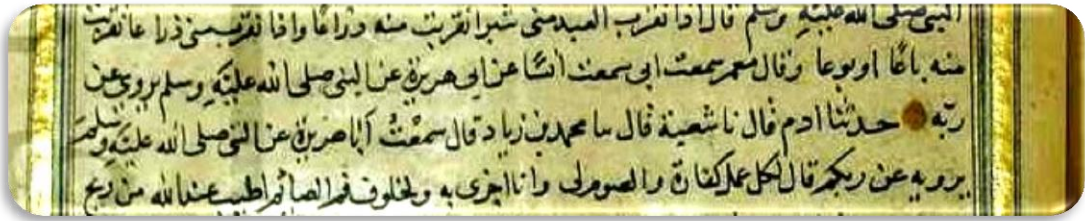 النبي صلى الله عليه وسلم قال اذا تقرب العبد مني شبرا تقربت منه ذراعا واذا تقرب مني ذراعا تقربت
منه باعا او بوعا وقال معمر سمعت ابي سمعت انسا عن ابي هريرة عن النبي صلى الله عليه وسلم يروي عن
ربه حدثنا ادم قال نا شعبة قال نا محمد بن زياد قال سمعت ابا هريرة عن النبي صلى الله عليه وسلم
يرويه عن ربكم قال لكل عمل كفارة والصوم لي وانا اجزي به ولخلوف فم الصائم اطيب عند الله من ريح